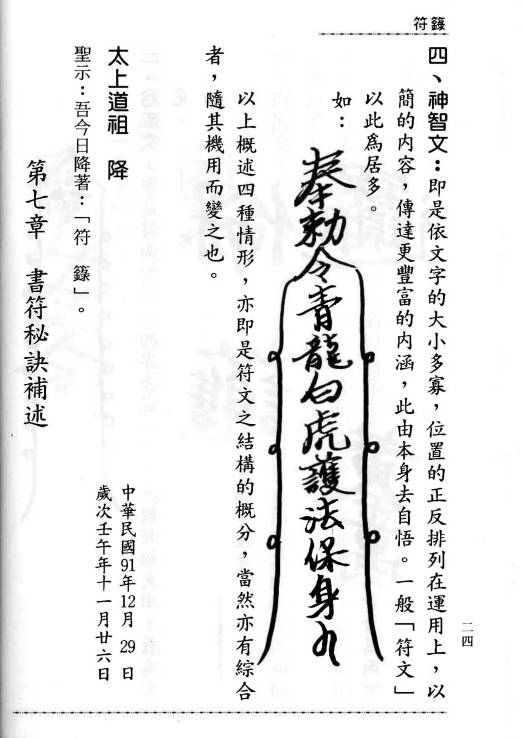 符籙
四、神智文：即是依文字的大小多寡，位置的正反排列在運用上，以
簡的內容，傳達更豐富的內涵，此由本身去自悟。一般「符文」
以此爲居多。
如：
奉勅令青龍白虎護法保身
以上概述四種情形，亦即是符文之結構的概分，當然亦有綜合
者，隨其機用而變之也。
太上道祖　降
聖示：吾今日降著：「符　籙」。
第七章　書符秘訣補述
中華民國91年12月29日
歲次壬午年十一月廿六日
二四